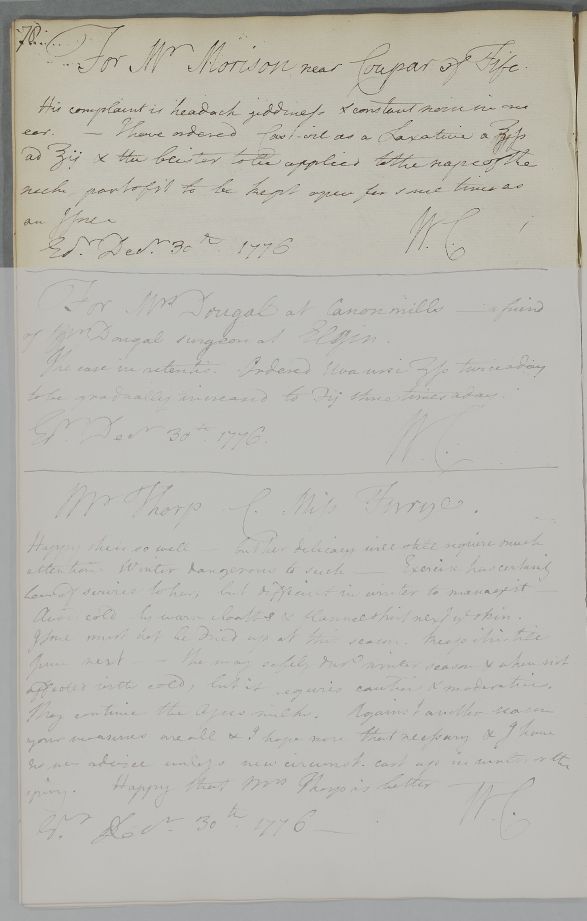 78
For Mr Morison near Coupar of Fife.
His complaint is headach giddiness & constant noise in one
ear. — I have ordered Cast. oil as a Laxative a ʒſs
ad ʒij & the blister to be applied to the nape of the
neck part of it to be kept open for some time as
an Issue
Edr. Decr. 30th. 1776 W. C.
For Mrs Dougal at Canonmills — a friend
of Dougal surgeon at Elgin.
The case in retentis. Ordered Uva ursi ʒſs twice a day
to be gradually increased to ʒij three times a day.
Edr. Decr 30th. 1776. W. C.
Mr Thorp C. Miss Furye.
Happy she is so well — but her delicacy will still require much
attention. Winter dangerous to such — Exercise has certainly
been of service to her, but difficult in winter to manage it —
Avoid cold by warm cloaths & flannel shirt next ye skin.
Issue must not be dried up at this season. keep it in till
June next — She may safely winter season & when not
affected with cold, but it requires caution & moderation.
May continue the Asses milk. Against another season
your measures are all & I hope more than necessary & I have
no new advice unless new circumst. cast up in winter or the
spring. Happy that Mrs Thorp is better
Edr Decr. 30th 1776 — W. C.